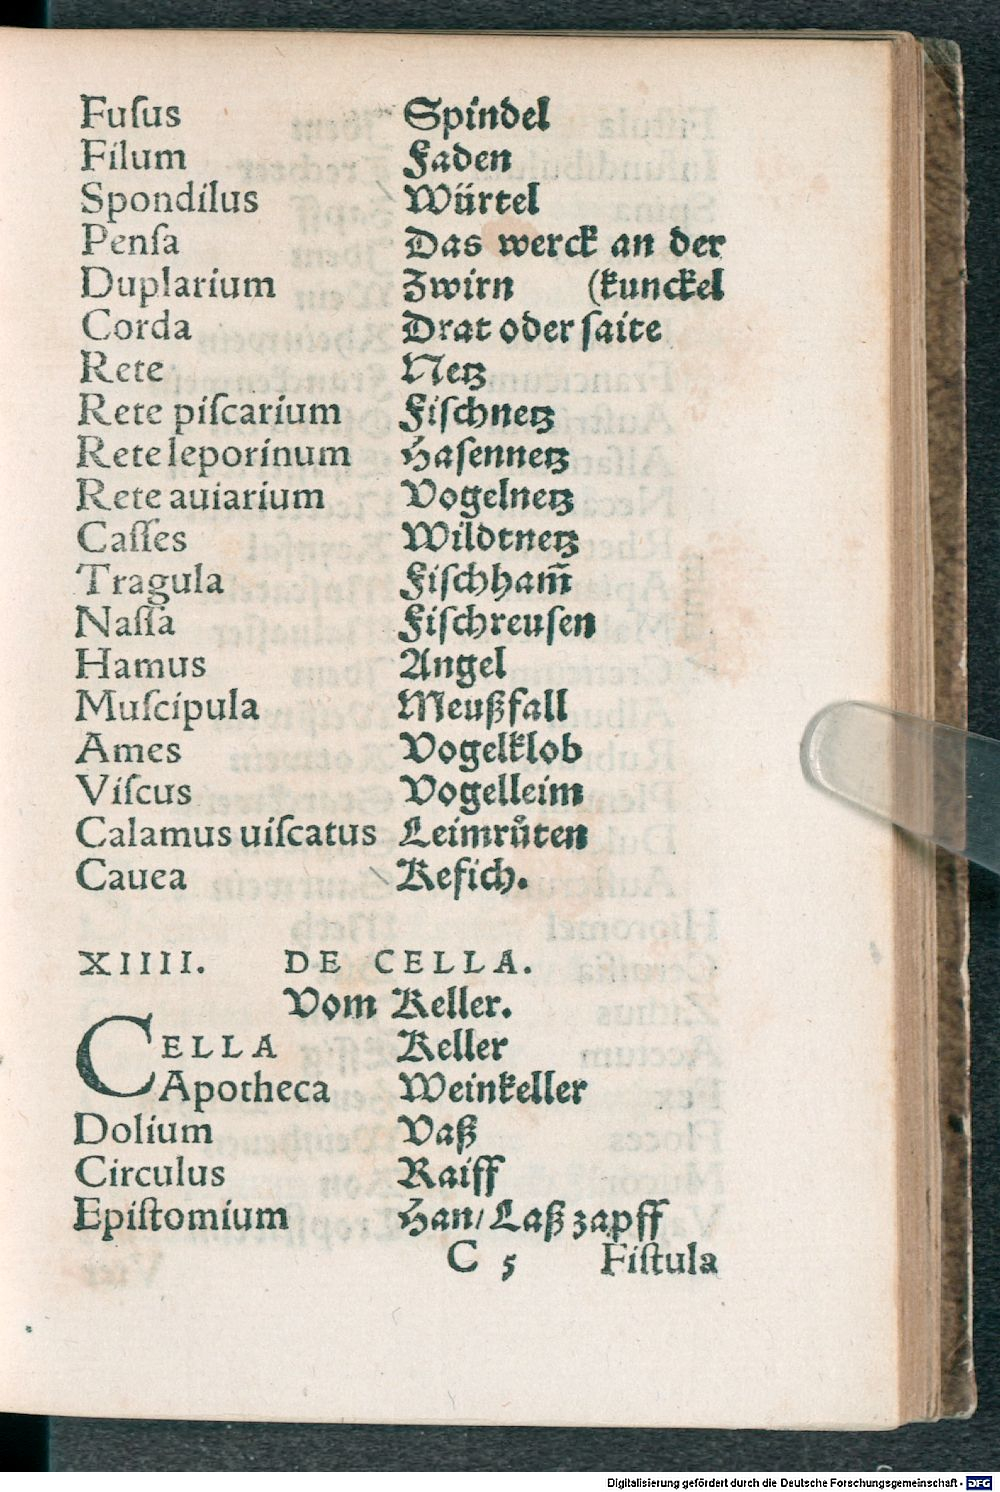 Fuſus Spindel
Filum Faden
Spondilus Würtel
Penſa Das werck an der
Duplarium Zwirn (kunckel
Corda Drat oder ſaite
Rete Netz
Rete piſcarium Fiſchnetz
Rete leporinum Haſennetz
Rete auiarium Vogelnetz
Caſſes Wildtnetz
Tragula Fiſchham̃
Naſſa Fiſchreuſen
Hamus Angel
Muſcipula Meußfall
Ames Vogelklob
Viſcus Vogelleim
Calamus uiſcatus Leimrůten
Cauea Kefich.
XIIII. DE CELLA.
Vom Keller.
CELLA Keller
Apotheca Weinkeller
Dolium Vaß
Circulus Raiff
Epiſtomium Han/ Laß zapff
C 5 Fiſtula
Digitalisierung gefördert durch die Deutsche Forschungsgemeinschaft - DFG